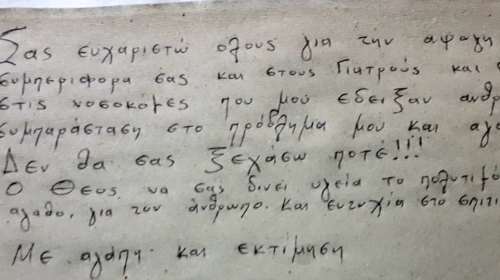 Σας ευχαριστώ ολους για την αψογη
συμπεριφορα σας και στους Γιατρούς και
στις νοσοκόμες που μού εδειξαν ανθρ
συμπαράσταση στο πρόβλημα μού και αγα
Δεν θα σας ξεχάσω ποτέ!!!
Ο Θεος να σας δινει υγεία το πολυτιμό
αγαθο, για τον άνθρωπο. και ευτυχία στο σπιτι
Με αγάπη και εκτίμηση